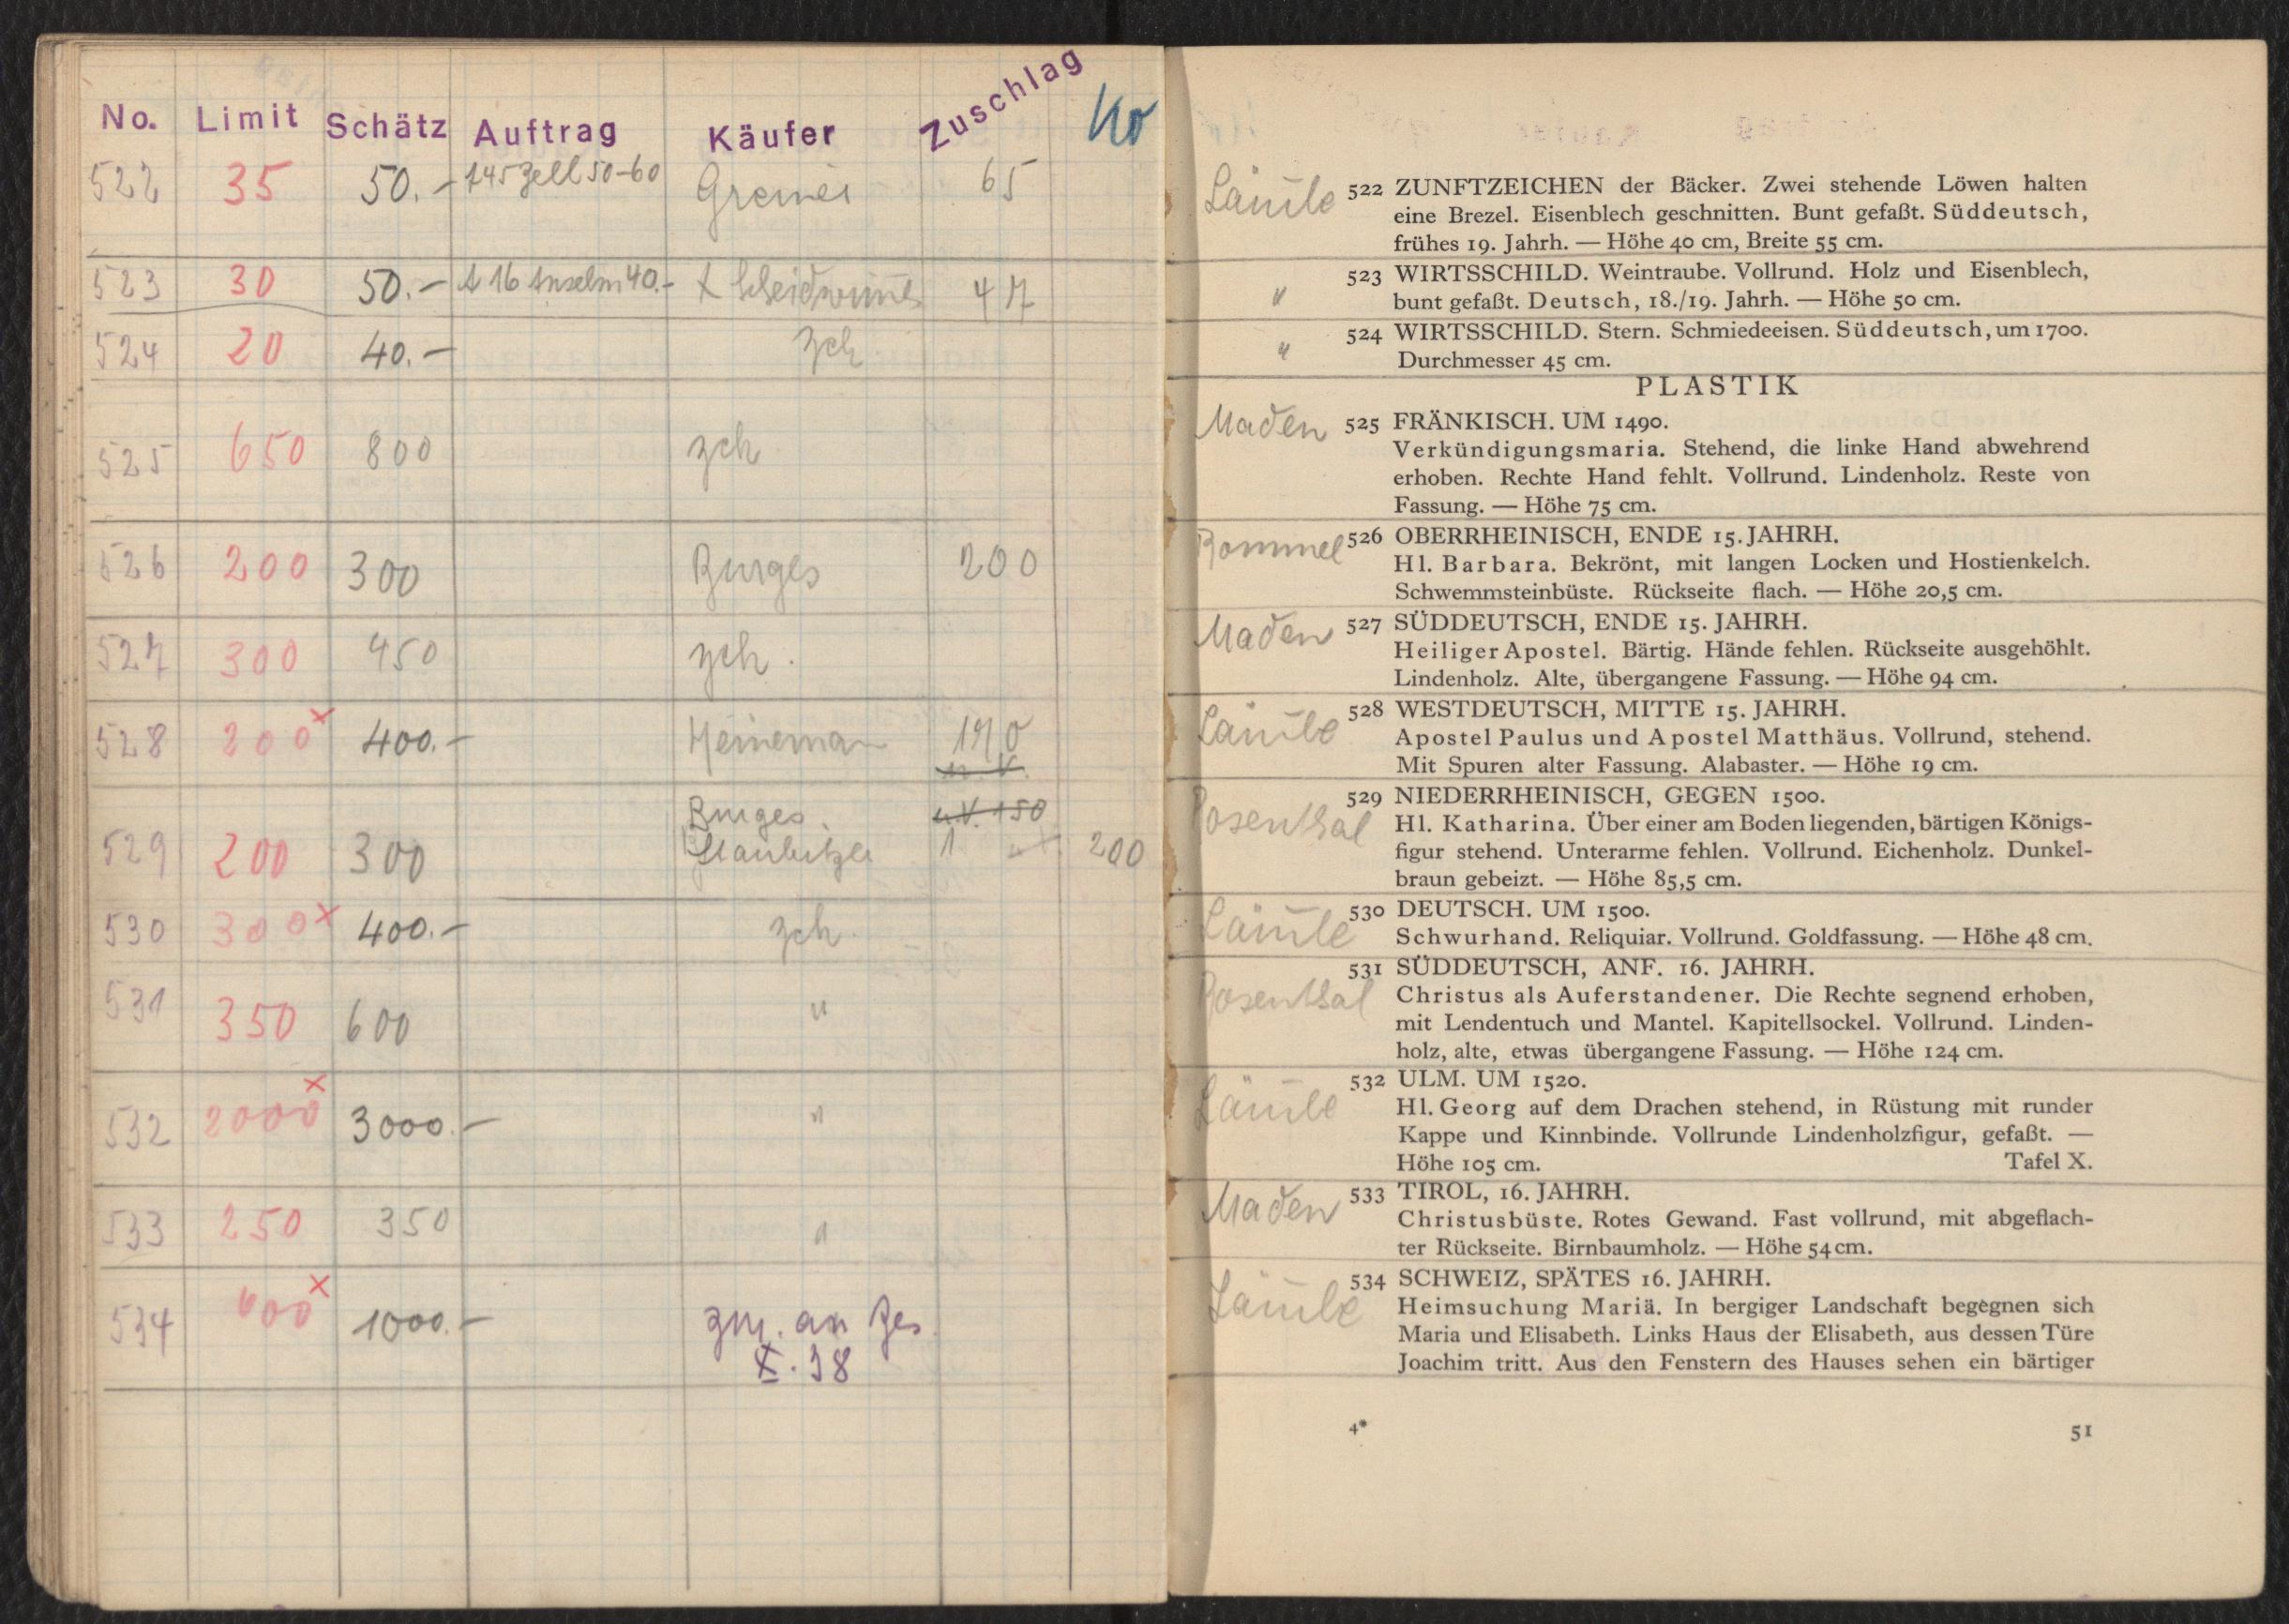 No. Limit Schätz Auftrag Käufer Zuschlag
522 35 50.- 50-60 65
523 30 50.- 16 40.- 47
524 20 40.-
525 650 800
526 200 300 Burges 200
527 300 450
528 200x 400.- Heineman 190
Burges 150
529 200 300 200
530 300x 400.-
531 350 600 "
532 2000x 3000.- "
533 250 350 "
534 600x 1000.- an
X.38
Läuile 522 ZUNFTZEICHEN der Bäcker. Zwei stehende Löwen halten
eine Brezel. Eisenblech geschnitten. Bunt gefaßt. Süddeutsch,
frühes 19. Jahrh. — Höhe 40 cm, Breite 55 cm.
" 523 WIRTSSCHILD. Weintraube. Vollrund. Holz und Eisenblech,
bunt gefaßt. Deutsch, 18./19. Jahrh. — Höhe 50 cm.
" 524 WIRTSSCHILD. Stern. Schmiedeeisen. Süddeutsch, um 1700.
Durchmesser 45 cm.
PLASTIK
Maden 525 FRÄNKISCH. UM 1490.
Verkündigungsmaria. Stehend, die linke Hand abwehrend
erhoben. Rechte Hand fehlt. Vollrund. Lindenholz. Reste von
Fassung. — Höhe 75 cm.
Rommel 526 OBERRHEINISCH, ENDE 15. JAHRH.
Hl. Barbara. Bekrönt, mit langen Locken und Hostienkelch.
Schwemmsteinbüste. Rückseite flach. — Höhe 20,5 cm.
Maden 527 SÜDDEUTSCH, ENDE 15. JAHRH.
Heiliger Apostel. Bärtig. Hände fehlen. Rückseite ausgehöhlt.
Lindenholz. Alte, übergangene Fassung. — Höhe 94 cm.
Läuile 528 WESTDEUTSCH, MITTE 15. JAHRH.
Apostel Paulus und Apostel Matthäus. Vollrund, stehend.
Mit Spuren alter Fassung. Alabaster. — Höhe 19 cm.
Rosenthal 529 NIEDERRHEINISCH, GEGEN 1500.
Hl. Katharina. Über einer am Boden liegenden, bärtigen Königs-
figur stehend. Unterarme fehlen. Vollrund. Eichenholz. Dunkel-
braun gebeizt. — Höhe 85,5 cm.
Läuile 530 DEUTSCH. UM 1500.
Schwurhand. Reliquiar. Vollrund. Goldfassung. — Höhe 48 cm.
Rosenthal 531 SÜDDEUTSCH, ANF. 16. JAHRH.
Christus als Auferstandener. Die Rechte segnend erhoben,
mit Lendentuch und Mantel. Kapitellsockel. Vollrund. Linden-
holz, alte, etwas übergangene Fassung. — Höhe 124 cm.
Läuile 532 ULM. UM 1520.
Hl. Georg auf dem Drachen stehend, in Rüstung mit runder
Kappe und Kinnbinde. Vollrunde Lindenholzfigur, gefaßt. —
Höhe 105 cm. Tafel X.
Maden 533 TIROL, 16. JAHRH.
Christusbüste. Rotes Gewand. Fast vollrund, mit abgeflach-
ter Rückseite. Birnbaumholz. — Höhe 54 cm.
Läuile 534 SCHWEIZ, SPÄTES 16. JAHRH.
Heimsuchung Mariä. In bergiger Landschaft begegnen sich
Maria und Elisabeth. Links Haus der Elisabeth, aus dessen Türe
Joachim tritt. Aus den Fenstern des Hauses sehen ein bärtiger
4*
51